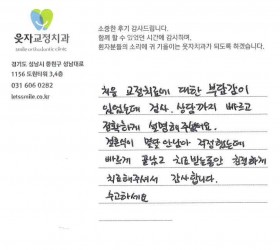 웃자교정치과
smile orthodontic clinic
경기도 성남시 중원구 성남대로
1156 도원타워 3,4층
031 606 0282
letssmile.co.kr
소중한 후기 감사드립니다.
함께 할 수 있었던 시간에 감사하며,
환자분들의 소리에 귀 기울이는 웃자치과가 되도록 하겠습니다.
처음 교정치료에 대한 부담감이
있었는데 검사, 상담까지 빠르고
정확하게 설명해주셨어요.
결혼식이 몇달 안남아 걱정했는데
빠르게 끝났고 치료받는동안 친절하게
치료해주셔서 감사합니다.
수고하세요